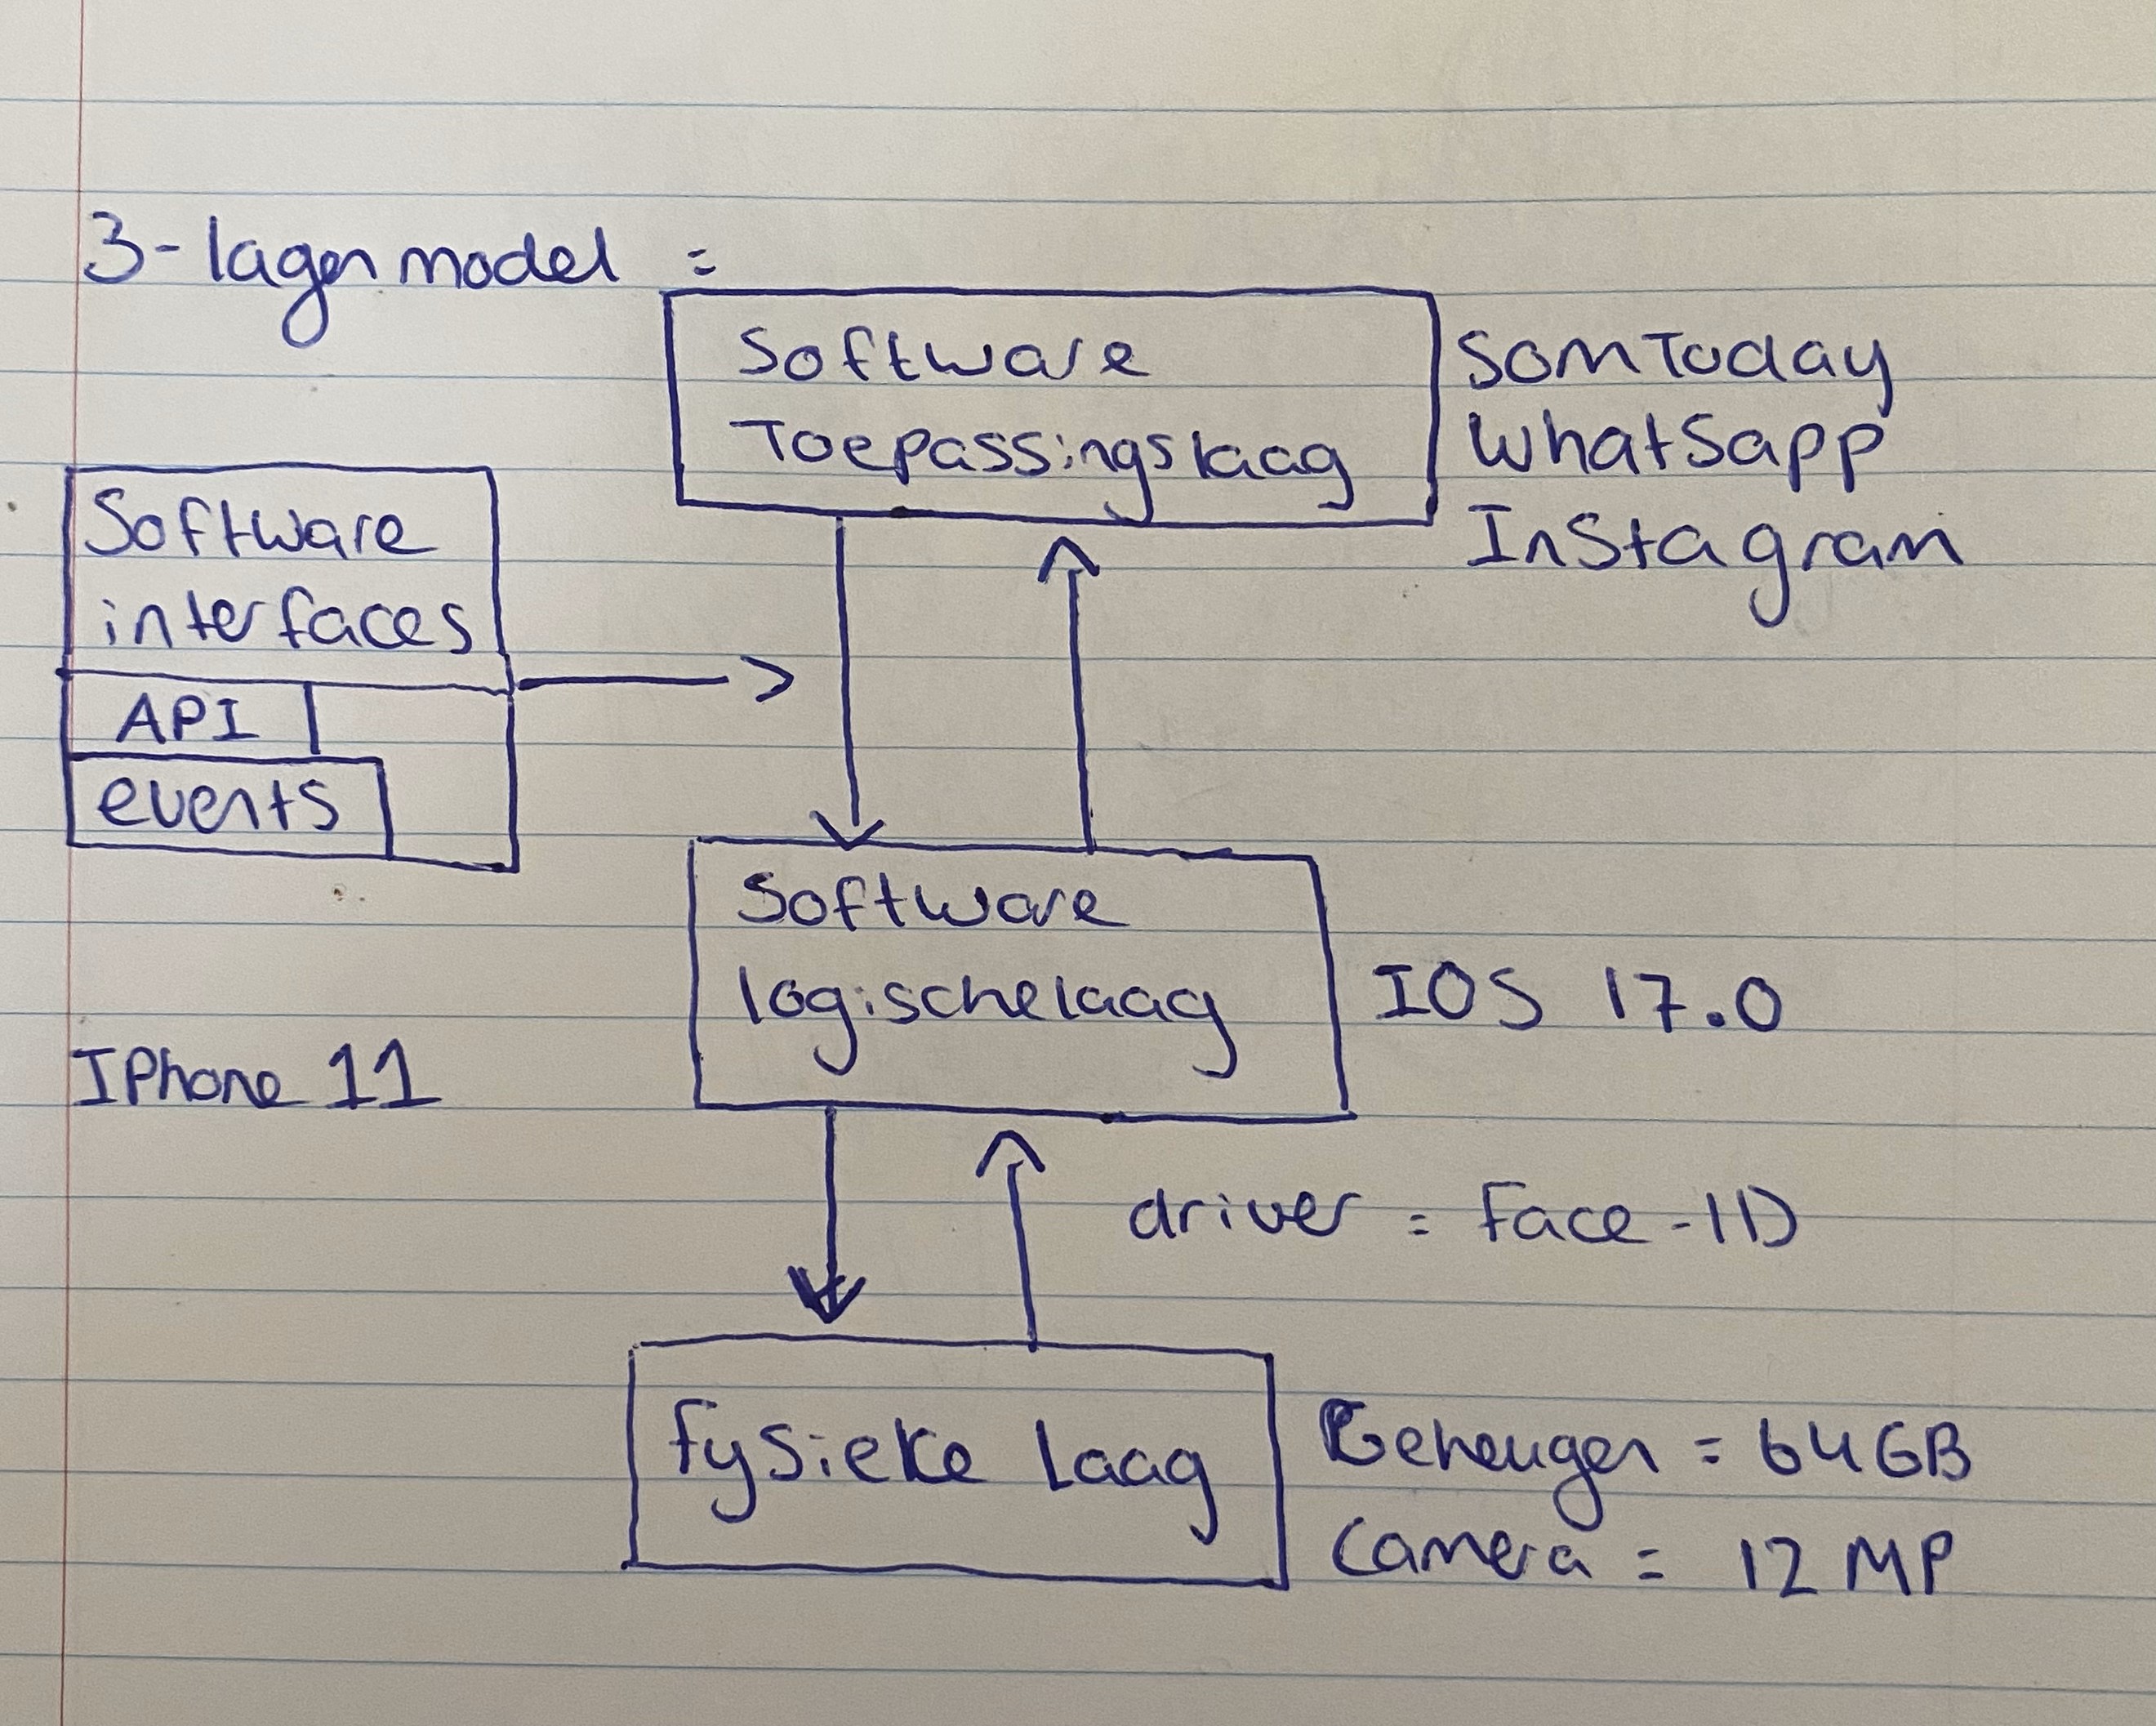 3-lagen model =
Software
Toepassingslaag
SOMToday
WhatSapp
InStagram
Software
interfaces
API
events
Software
logischelaag
IOS 17.0
IPhone 11
driver = Face-ID
fysieke laag
Geheugen = 64GB
Camera = 12 MP